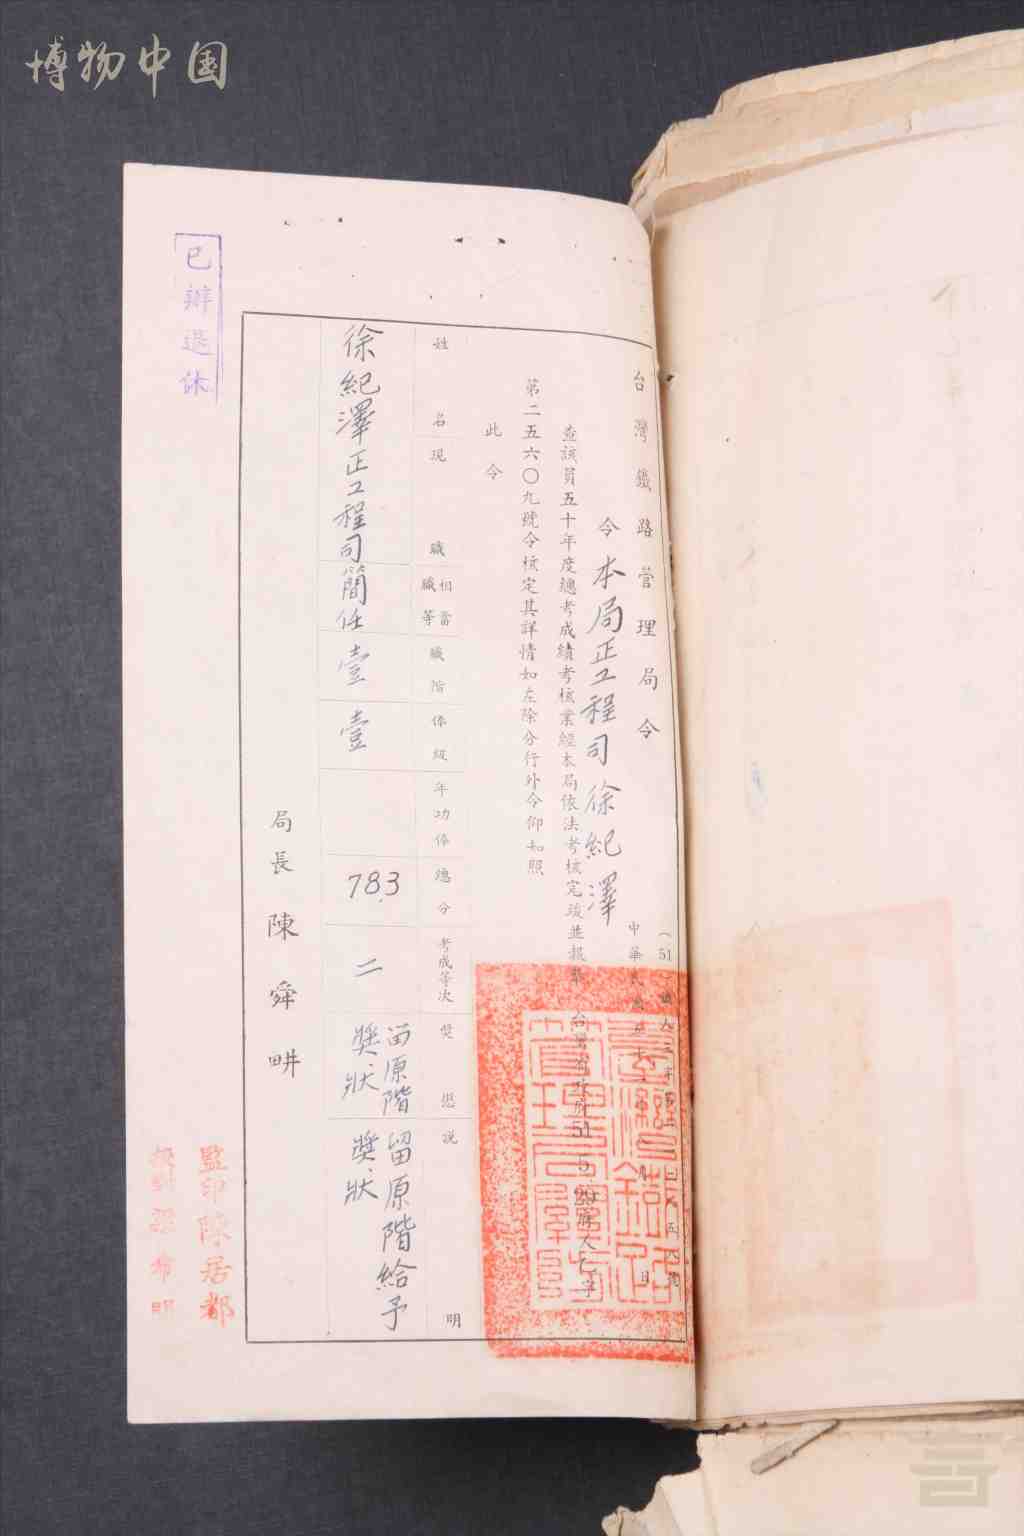 博物中国
台灣鐵路管理局令
令本局正工程司徐紀澤
查該員五十年度總考成績考核業經本局依法考核定竣並報奉 台灣省政府51 5 29府人乙字
第二五六〇九號令核定其詳情如左除分行外令仰知照
此令
姓名 現職 相當職等 職階 俸級 年功俸 總分 考成等次 獎懲 說明
徐紀澤 正工程司 簡任 壹 壹 78.3 二 留原階獎狀 留原階給予獎狀
局長 陳舜畊
監印陳居都
校對
已辦退休